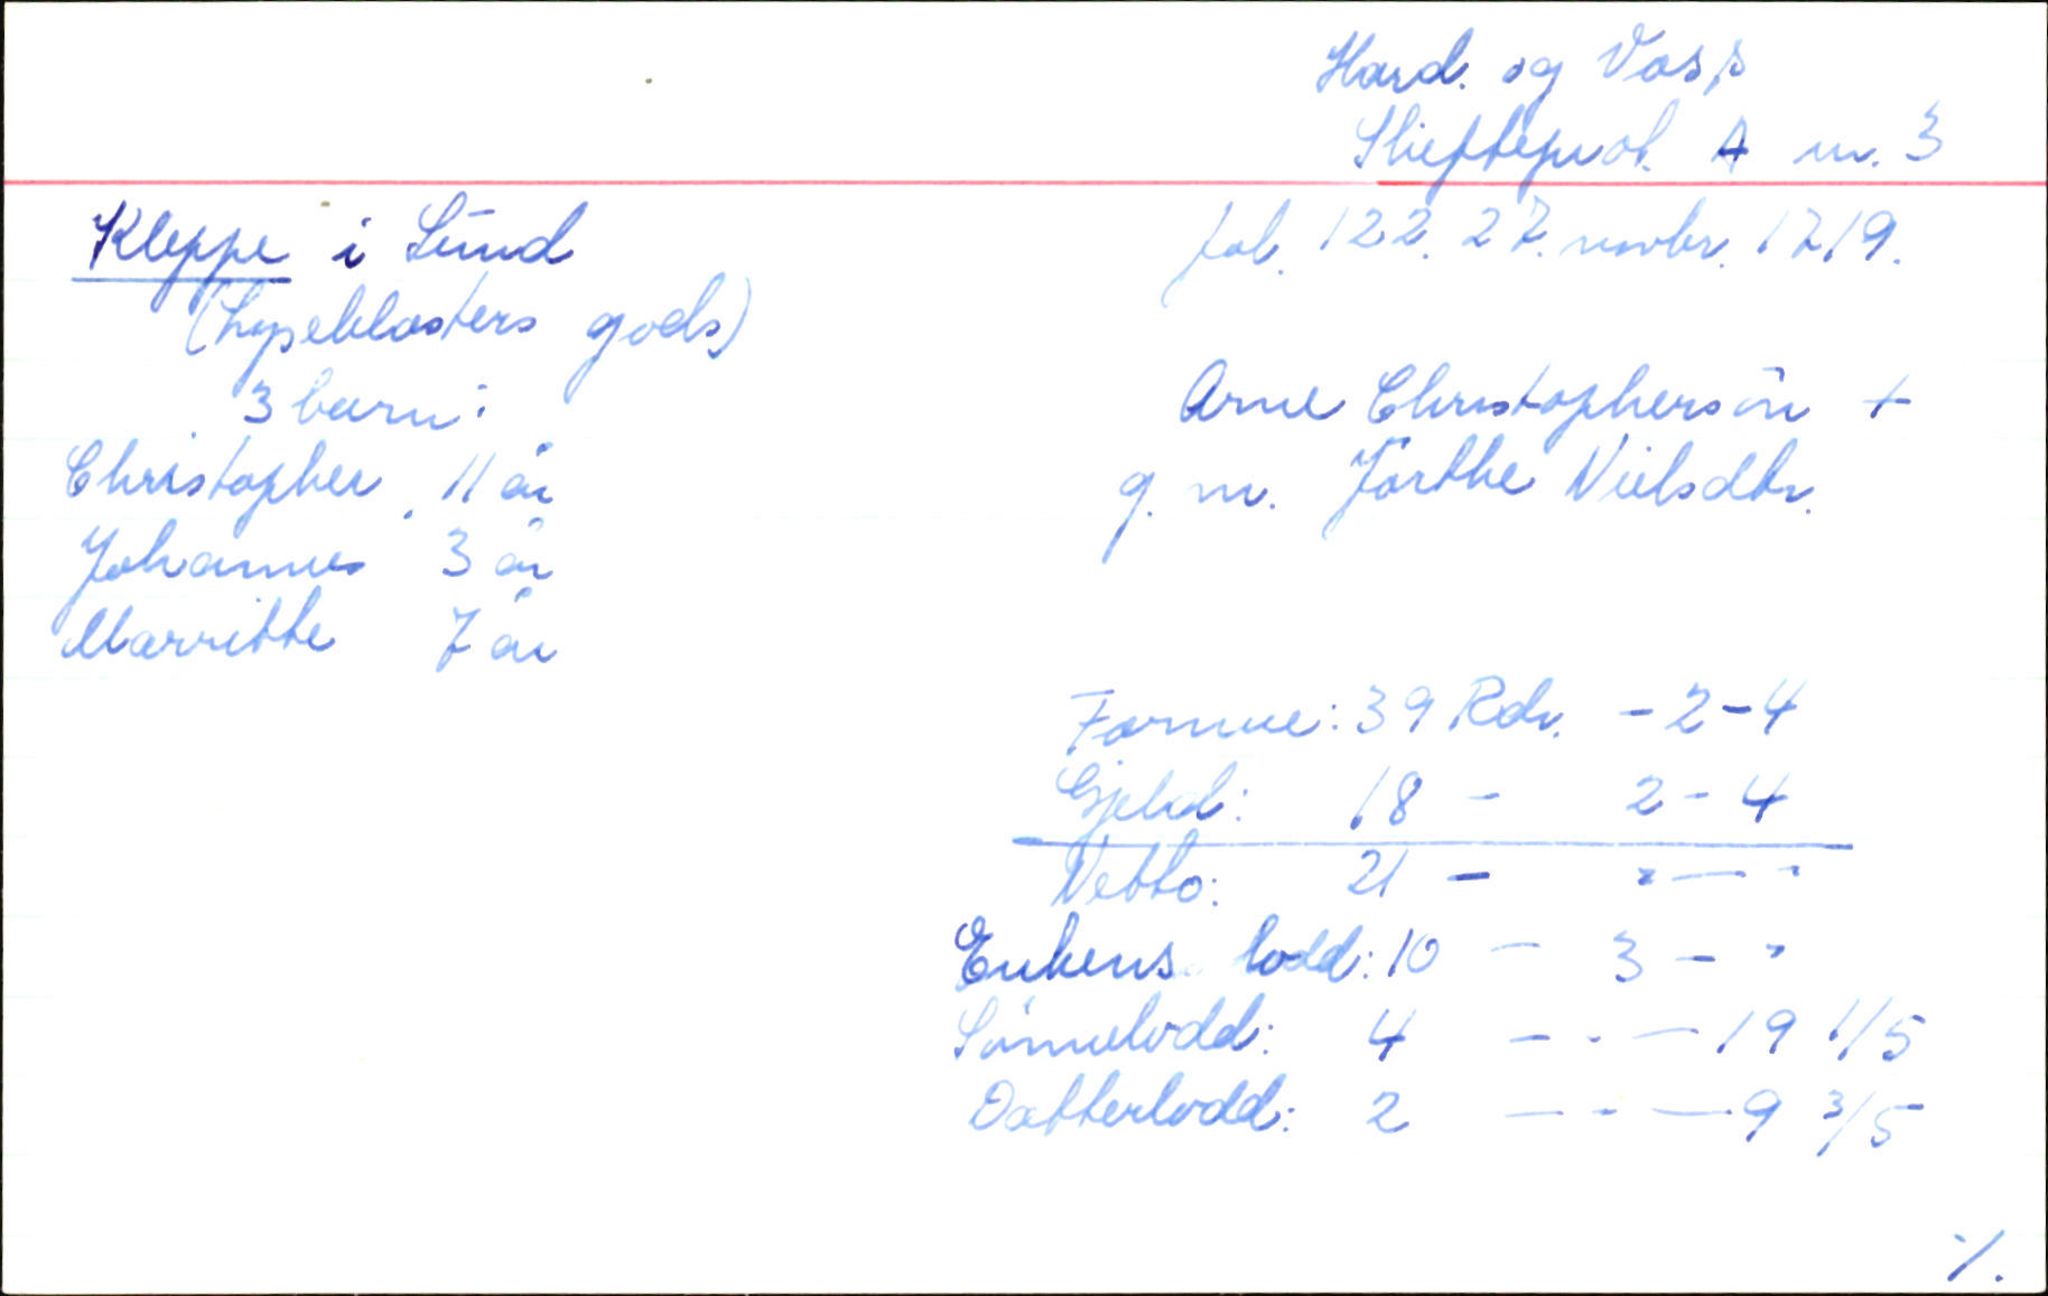 Hard. og Voss
Skifteprot. A nr. 3
fol. 122. 27. novbr. 1719.
Kleppe i Sund
(Lyseklosters gods)
3 barn:
Christopher 11 år
Johannes 3 år
Marritte 7 år
Arne Christophersön +
g. m. Jörthe Nielsdtr.
Formue: 39 Rdr. - 2 - 4
Gjeld: 18 - 2 - 4
Netto: 21 - " - "
Enkens lodd: 10 - 3 - "
Sönnelodd: 4 - " - 19 1/5
Datterlodd: 2 - " - 9 3/5
./.